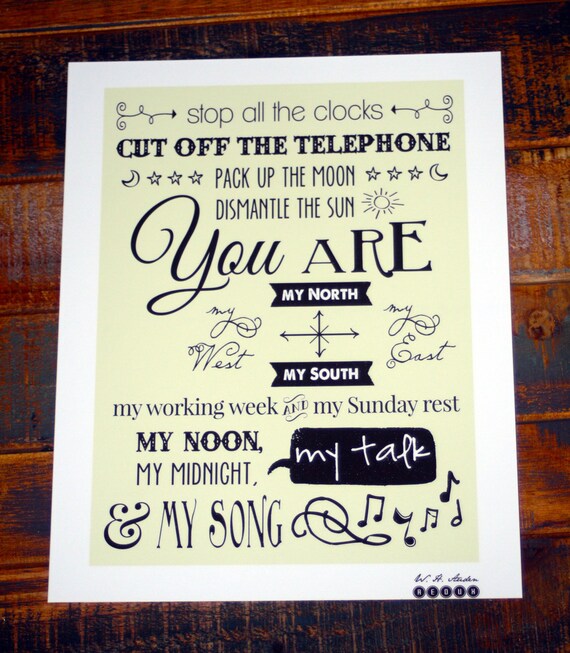 stop all the clocks
CUT OFF THE TELEPHONE
PACK UP THE MOON
DISMANTLE THE SUN
You ARE
MY NORTH
my West
my East
MY SOUTH
my working week AND my Sunday rest
MY NOON,
MY MIDNIGHT,
my talk
& MY SONG
W. H. Auden
REDUX